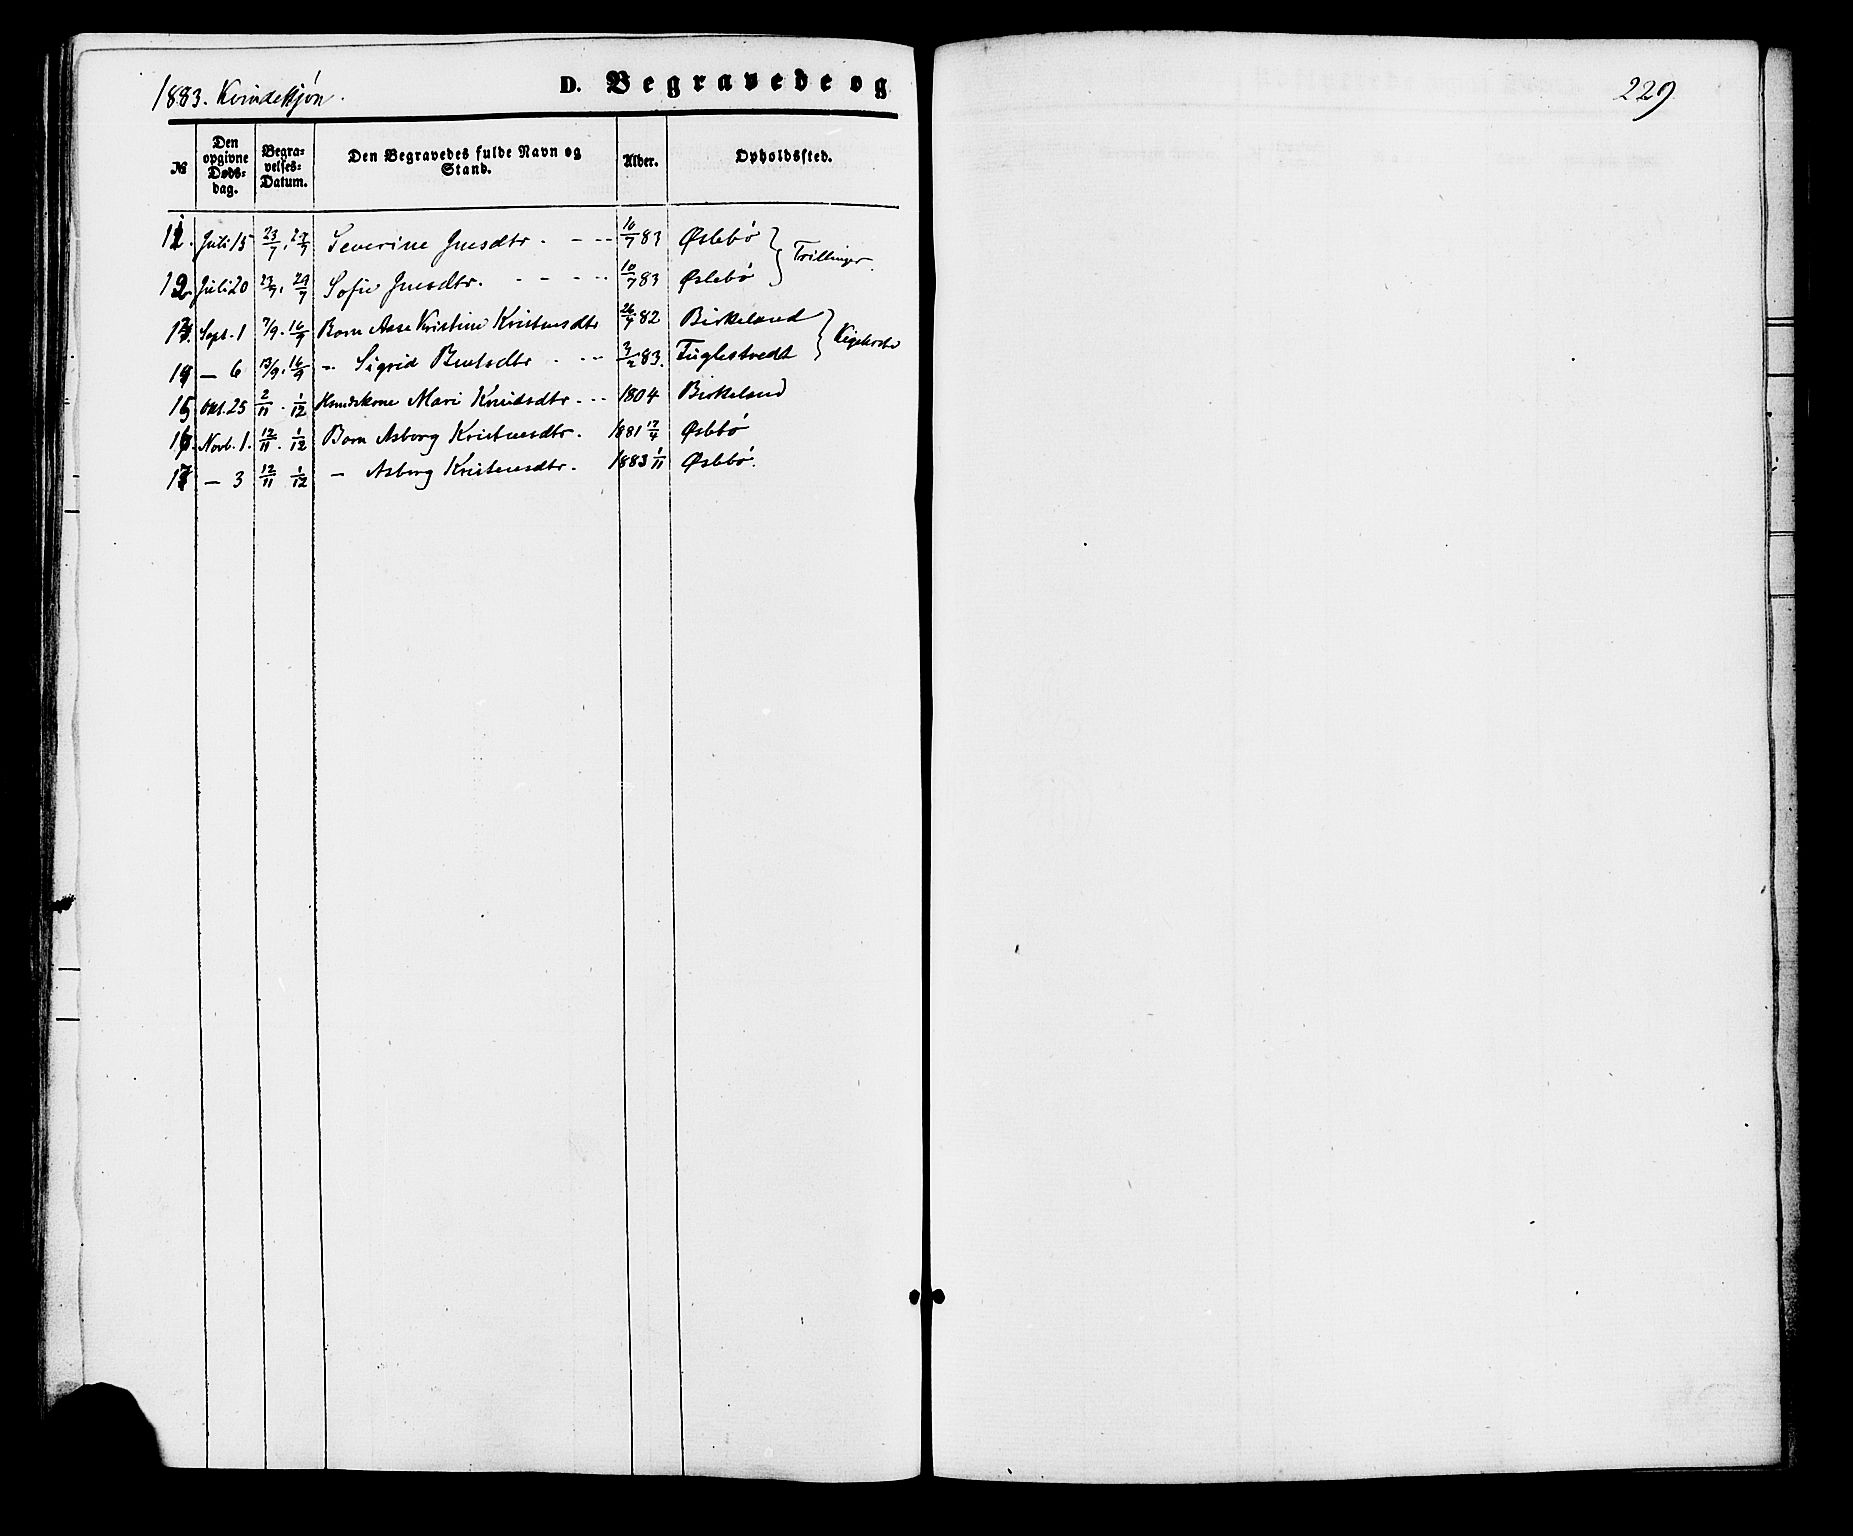 1883. Kvindekjøn.
D. Begravede og
229
№ | Den opgivne Døds-dag. | Begra-velses-Datum. | Den Begravedes fulde Navn og Stand. | Alder. | Opholdssted.
11. Juli 15 23/7, 29/7 Severine Jnesdtr. - - - 10/7 83 Øslebö } Trillinger.
12 Juli 20 23/7, 29/7 Sofie Jnesdtr. - - - - 10/7 83 Øslebö
13. Sept. 1 7/9. 16/9 Barn Aase Kristine Kristensdtr 26/4 82 Birkeland }
14 — 6 13/9, 16/9 — Sigrid Bentsdtr - - - 3/2 83. Fuglestvedt
15 Okt. 25 2/11. 1/12 Mari Knudsdtr. - - 1804 Birkeland
16. Novb. 1. 12/11. 1/12 Barn Asborg Kristensdtr. 1881 17/4 Øslebö
17 — 3 12/11 1/12 — Asborg Kristensdtr. 1883 1/11 Øslebö.